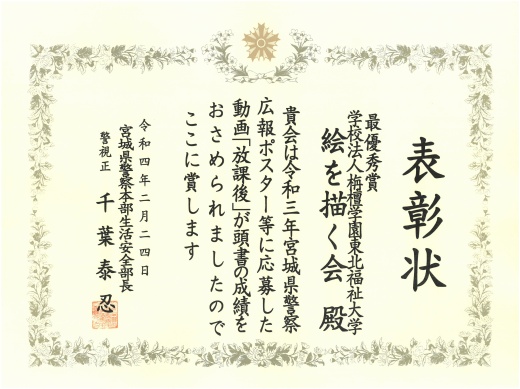 表彰状
最優秀賞
学校法人栴檀学園東北福祉大学
絵を描く会 殿
貴会は令和三年宮城県警察
広報ポスター等に応募した
動画「放課後」が頭書の成績を
おさめられましたので
ここに賞します
令和四年二月二四日
宮城県警察本部生活安全部長
警視正 千葉泰忍